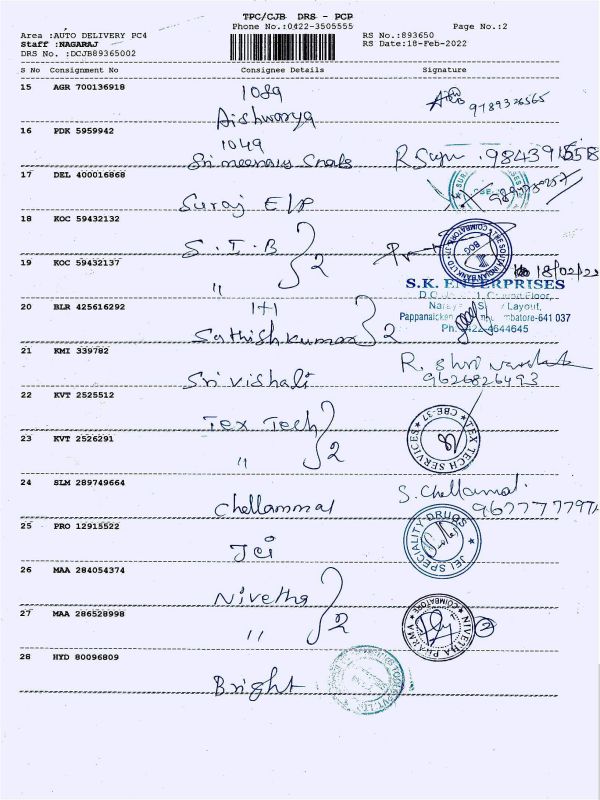 TPC/CJB DRS - PCP
Phone No.:0422-3505555
Page No.:2
Area :AUTO DELIVERY PC4
RS No.:893650
Staff :NAGARAJ
RS Date:18-Feb-2022
DRS No. :DCJB89365002
S No Consignment No Consignee Details Signature
15 AGR 700136918 1089
Aishwarya 9789326565
16 PDK 5959942 1049
17 DEL 400016868
Suraj E/P
18 KOC 59432132
S.I.B } 2
THE SOUTH INDIAN BANK LTD
COIMBATORE
19 KOC 59432137
" 18/02/22
S.K. ENTERPRISES
Layout,
Pappanaicken mbatore-641 037
Ph. 4644645
20 BLR 425616292 1+1
Sathishkumar } 2
21 KMI 339782 R. Shri
Srivishali 9626826493
22 KVT 2525512
Tex Tech } 2
TEX TECH SERVICES
CBE-37
23 KVT 2526291
"
24 SLM 289749664
Chellammal S. Chellamal
25 PRO 12915522
Jei
JEI SPECIALITY DRUGS
26 MAA 284054374
Nivetha } 2
27 MAA 286528998
" 2
NIVETHA PHARMA
COIMBATORE
28 HYD 80096809
Bright